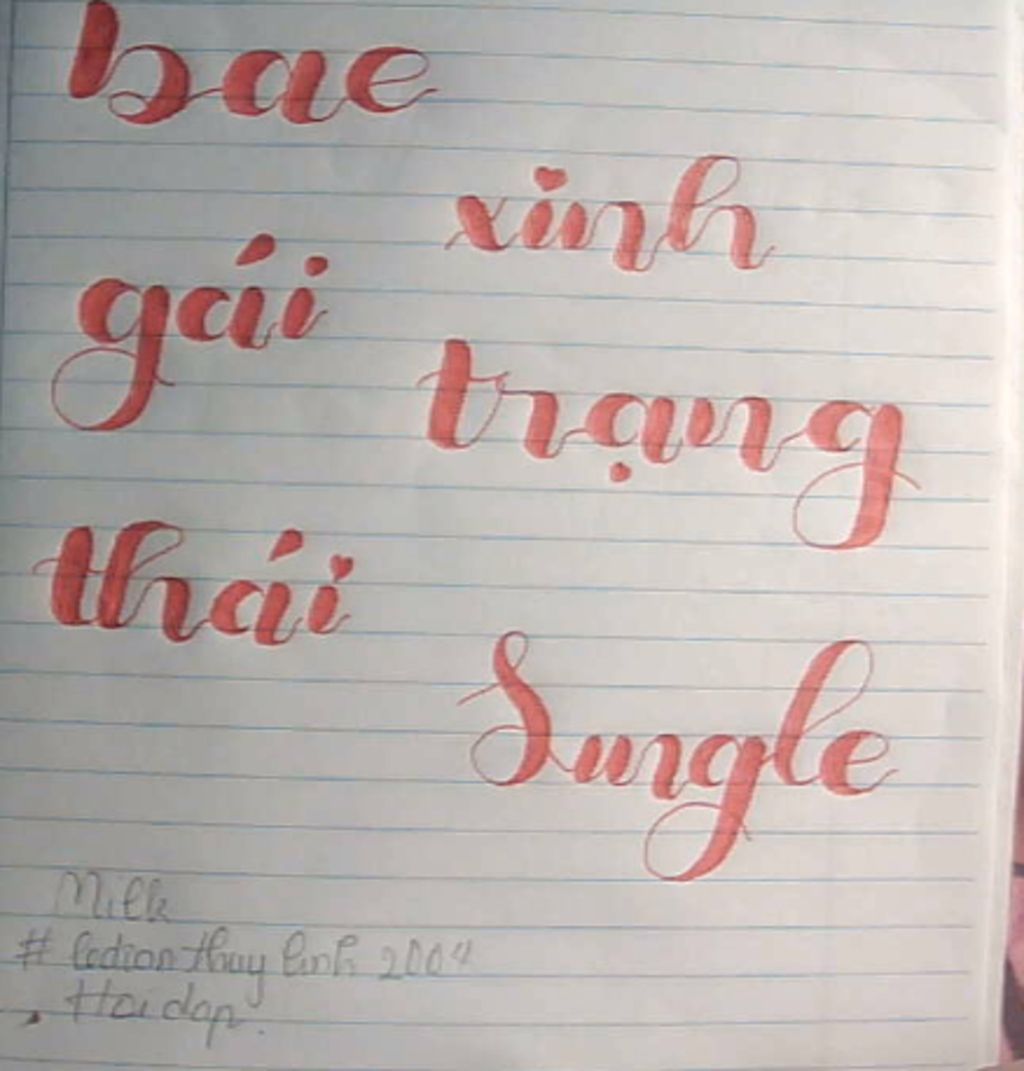 bae
xinh
gái
trạng
thái
Single
Milk
# ledieonthuy linh 2004
Hoidap.